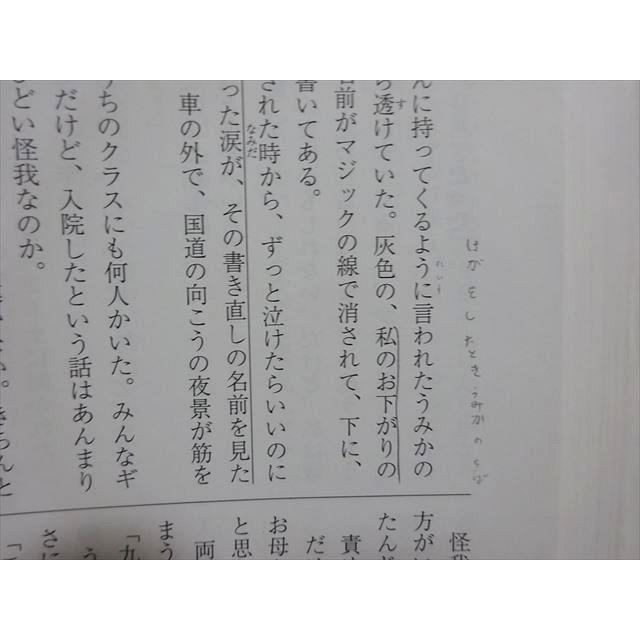 けがをしたときうみかのそば
んに持ってくるように言われたうみかの
ら透けていた。灰色の、私のお下がりの
名前がマジックの線で消されて、下に、
書いてある。
された時から、ずっと泣けたらいいのに
った涙が、その書き直しの名前を見た
車の外で、国道の向こうの夜景が筋を
うちのクラスにも何人かいた。みんなギ
だけど、入院したという話はあんまり
ひどい怪我なのか。
きちんと
怪我
方がい
たんだ
責め
だ
お母
と思
両
まう
「九
う
さに